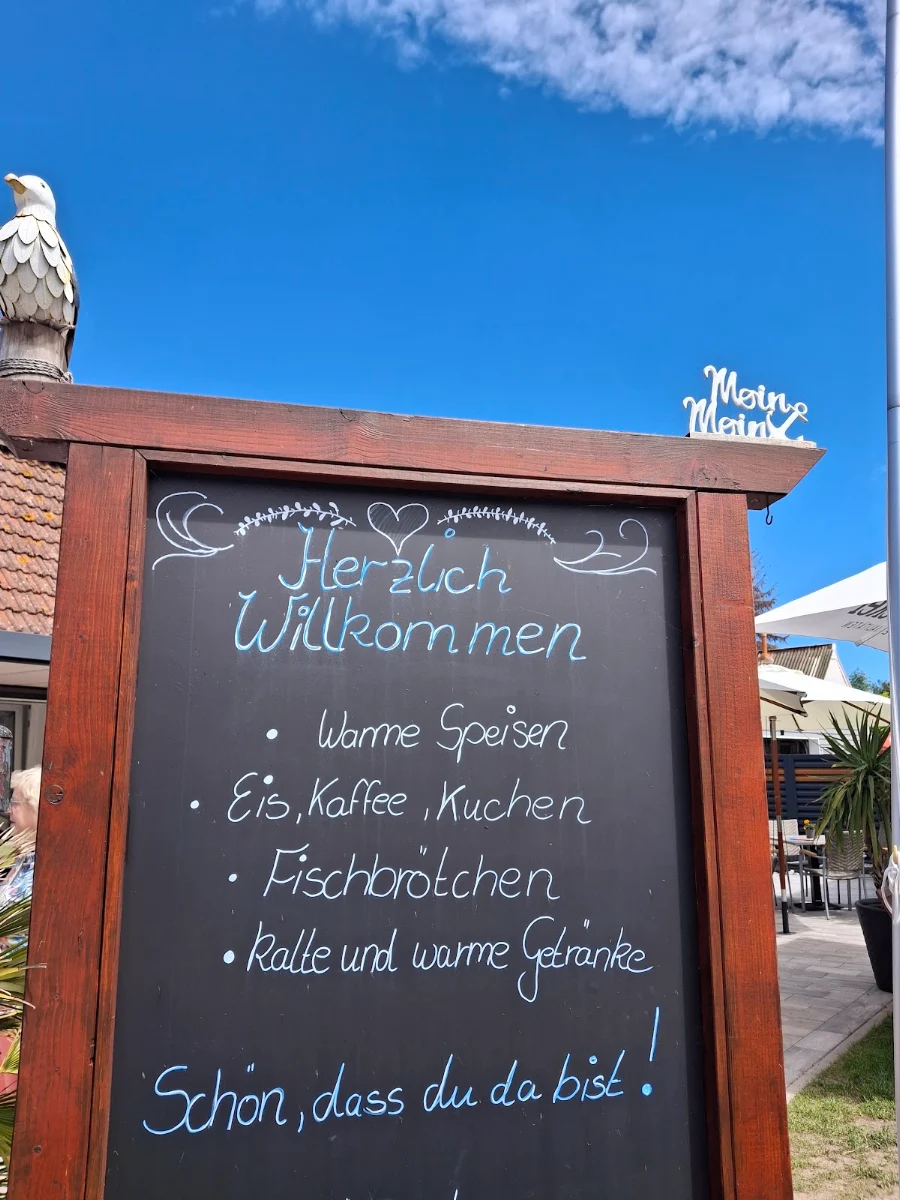 Moin
Moin
Herzlich
Willkommen
• Warme Speisen
• Eis, Kaffee, Kuchen
• Fischbrötchen
• Kalte und warme Getränke
Schön, dass du da bist!